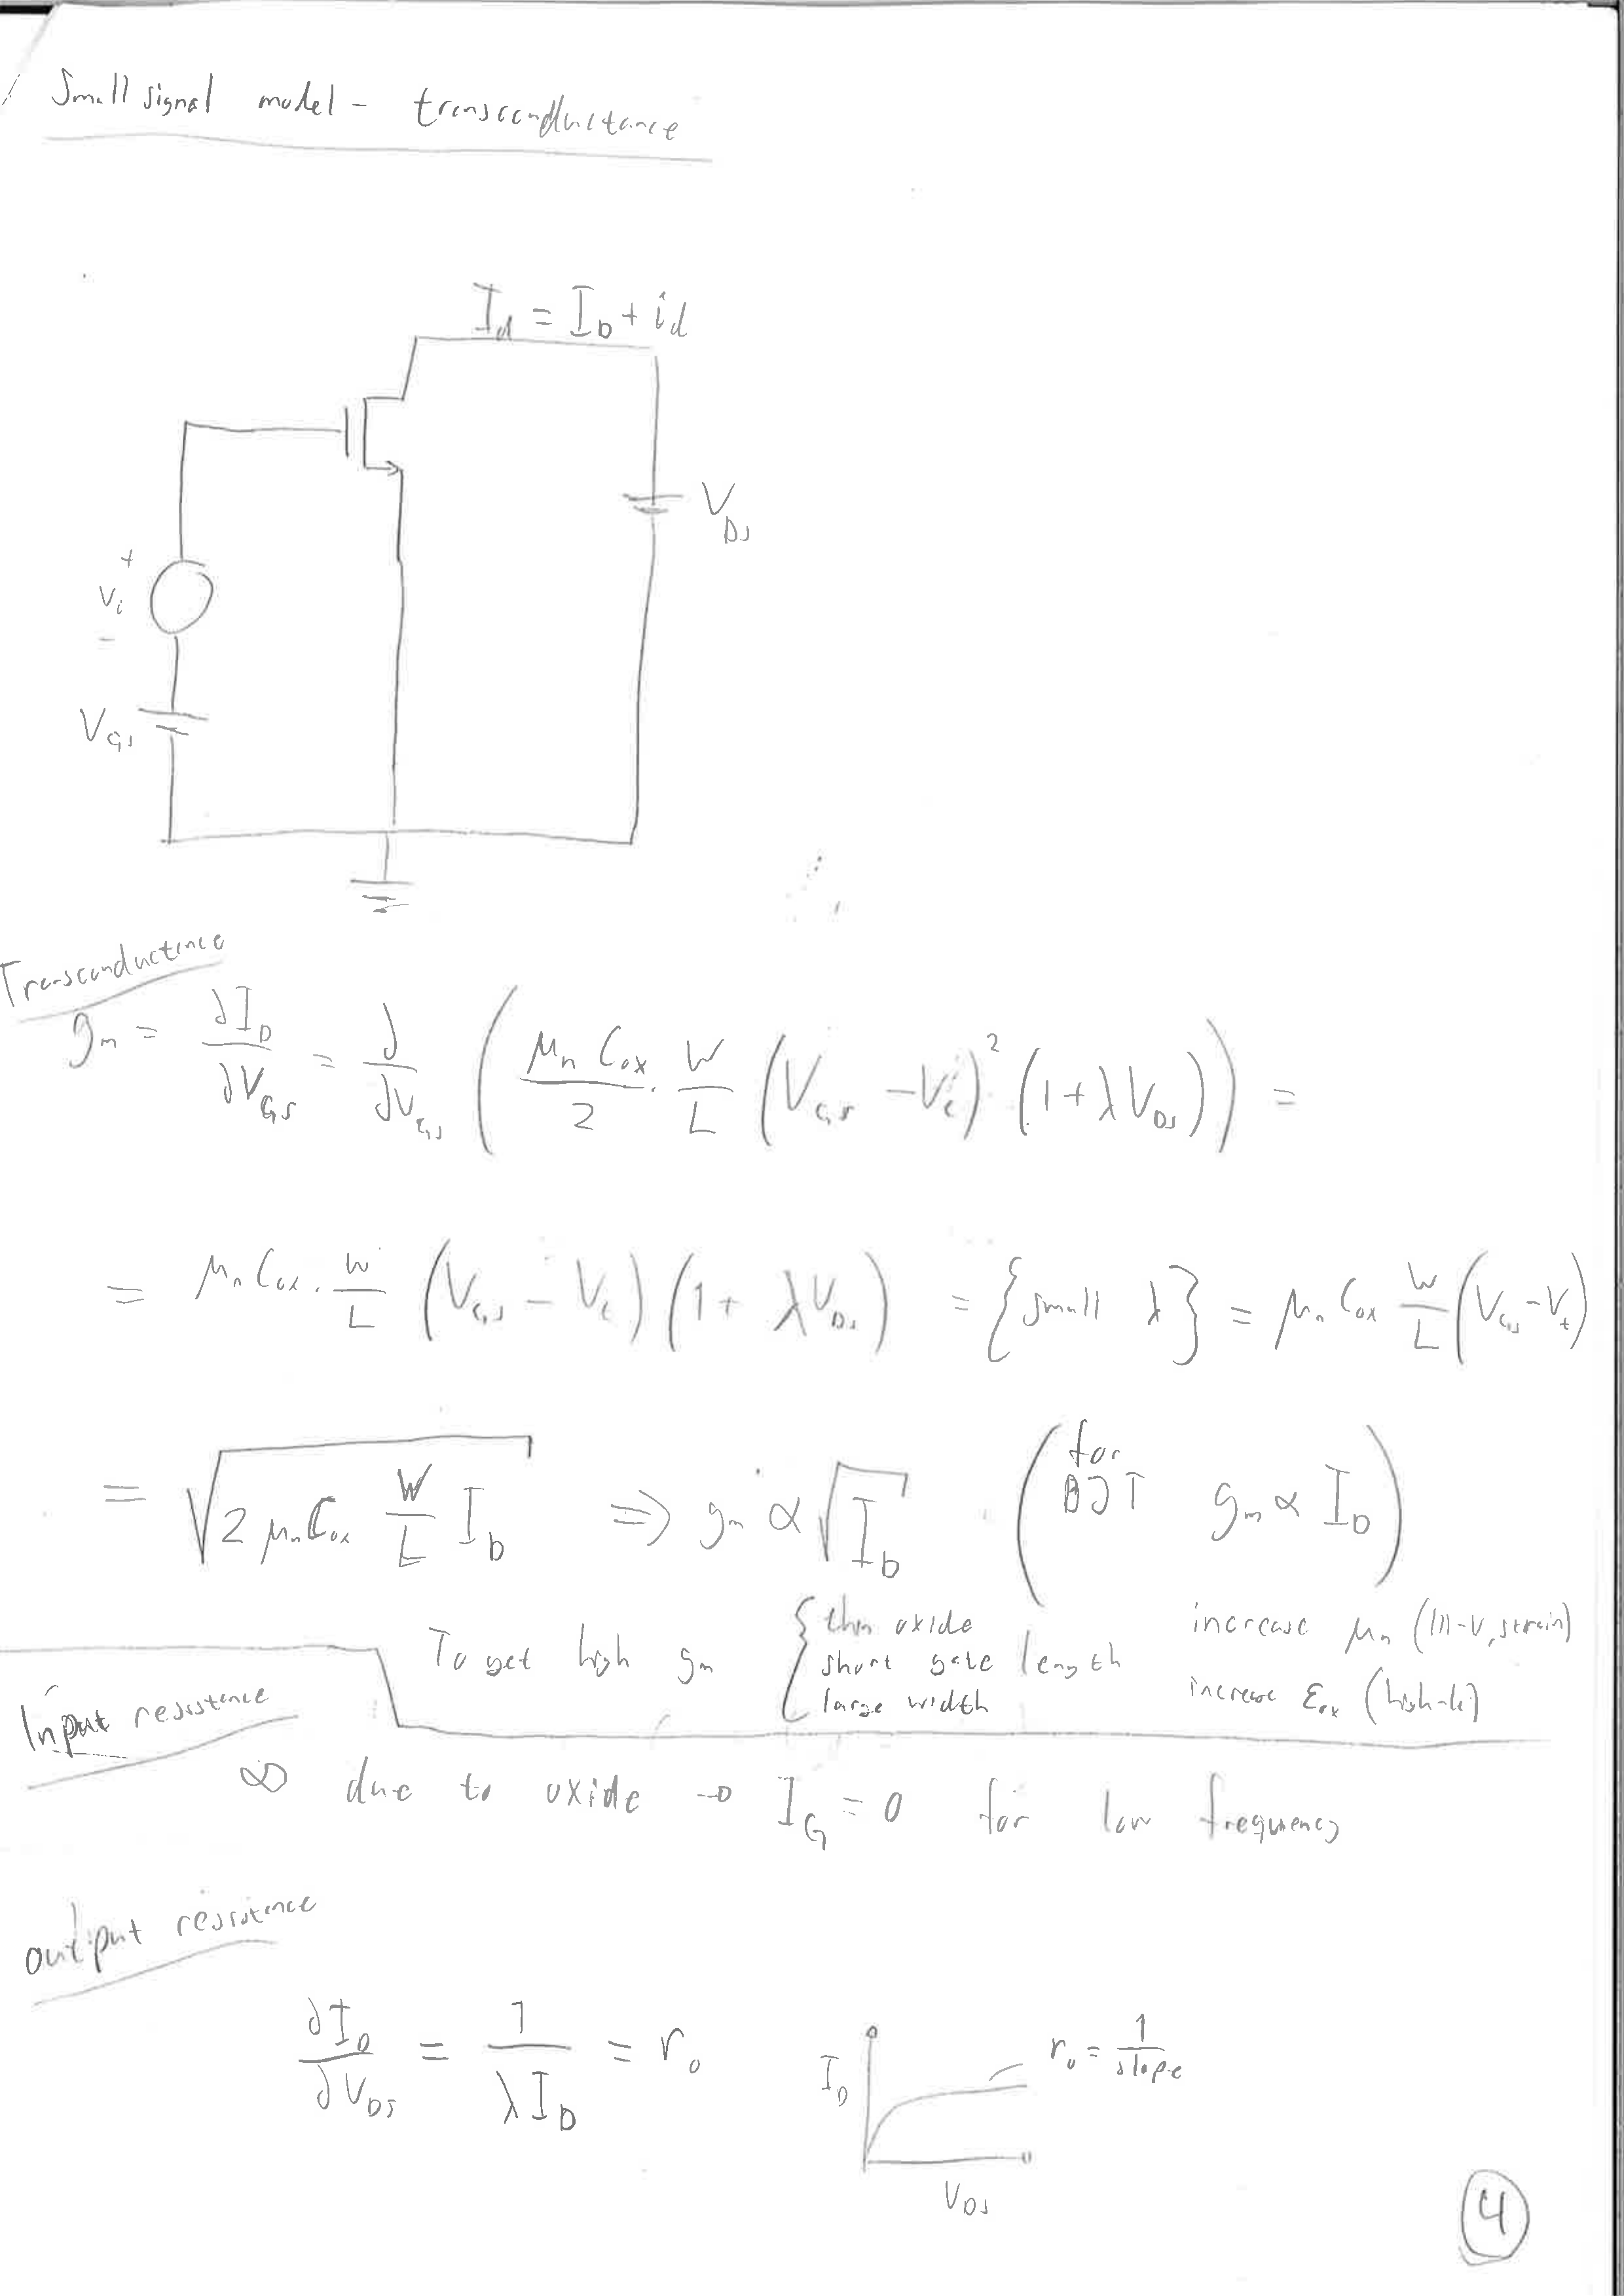 Small signal model - transconductance
I_d = I_D + i_d
V_DS
+
v_i
-
V_GS
Transconductence
g_m = ∂I_D/∂V_GS = ∂/∂V_GS ( μ_n C_ox/2 · W/L (V_GS - V_t)² (1 + λ V_DS) ) =
= μ_n C_ox · W/L (V_GS - V_t) (1 + λ V_DS) = {small λ} = μ_n C_ox W/L (V_GS - V_t)
= √(2 μ_n C_ox W/L I_D) ⇒ g_m ∝ √I_D (for BJT g_m ∝ I_D)
To get high g_m { thin oxide
short gate length
large width
increase μ_n (III-V, strain)
increase ε_ox (high-k)
Input resistence
∞ due to oxide → I_G = 0 for low frequency
output resistence
∂I_D/∂V_DS = 1/(λ I_D) = r_o
I_D
r_o = 1/slope
V_DS
4